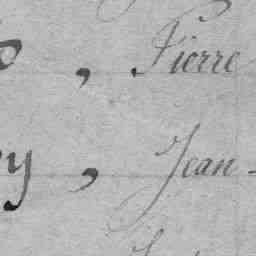 , Pierre
y, Jean-